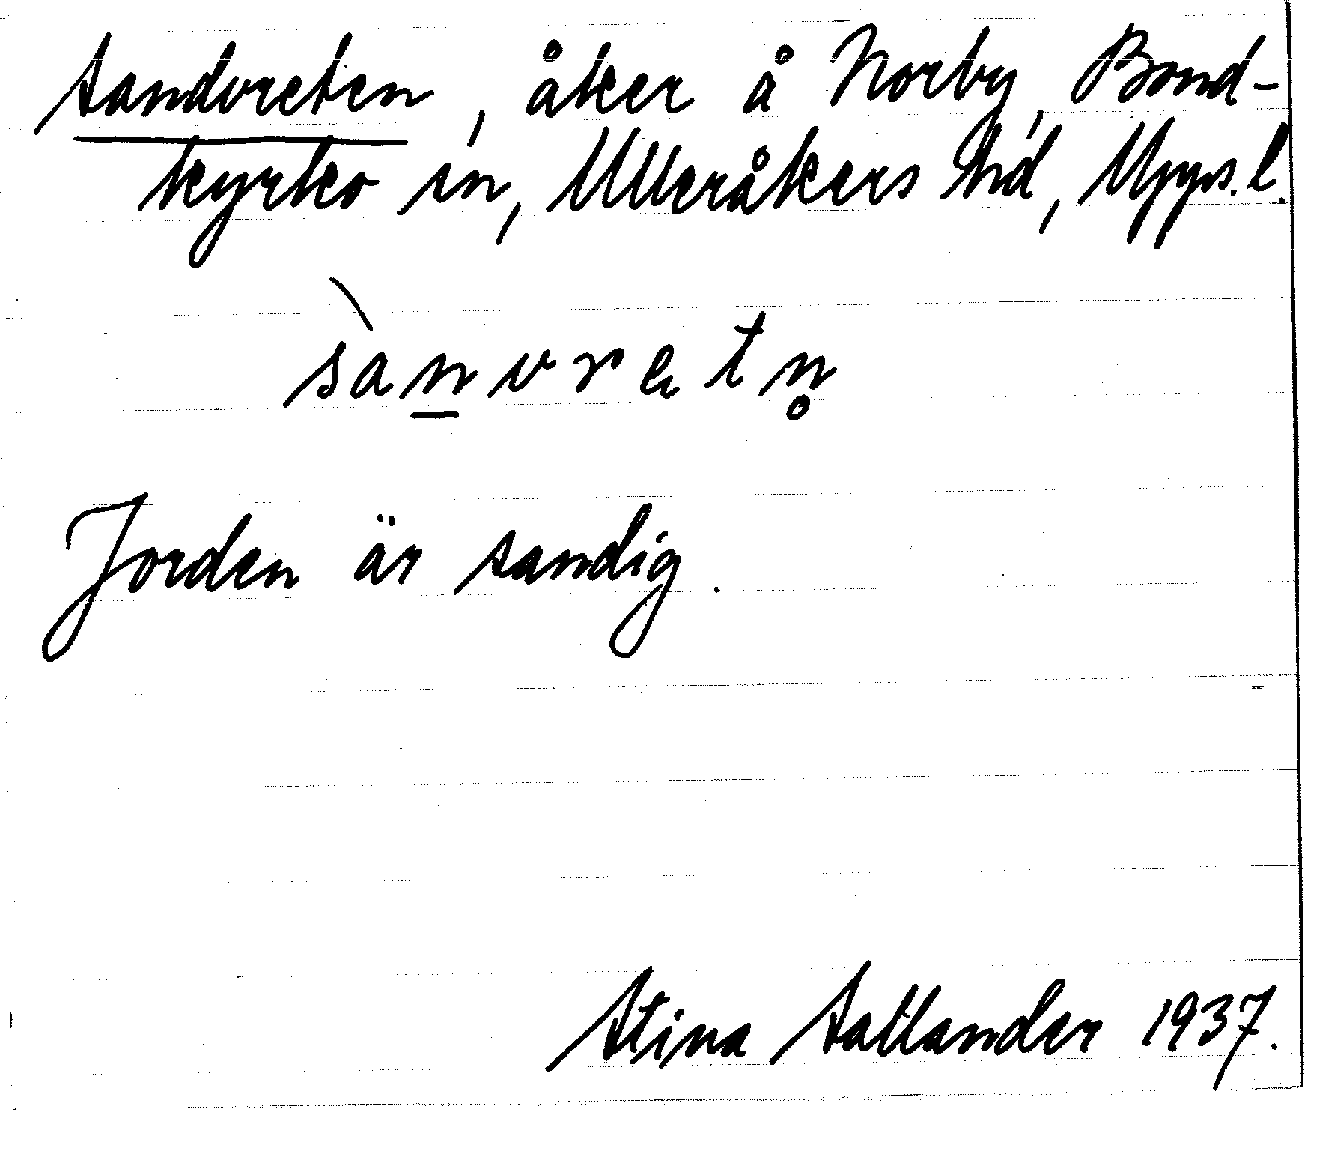 Sandvreten, åker å Norby, Bond-
kyrko sn, Ulleråkers hd, Upps. l.
sàn̲vretn̥
Jorden är sandig.
Stina Sallander 1937.